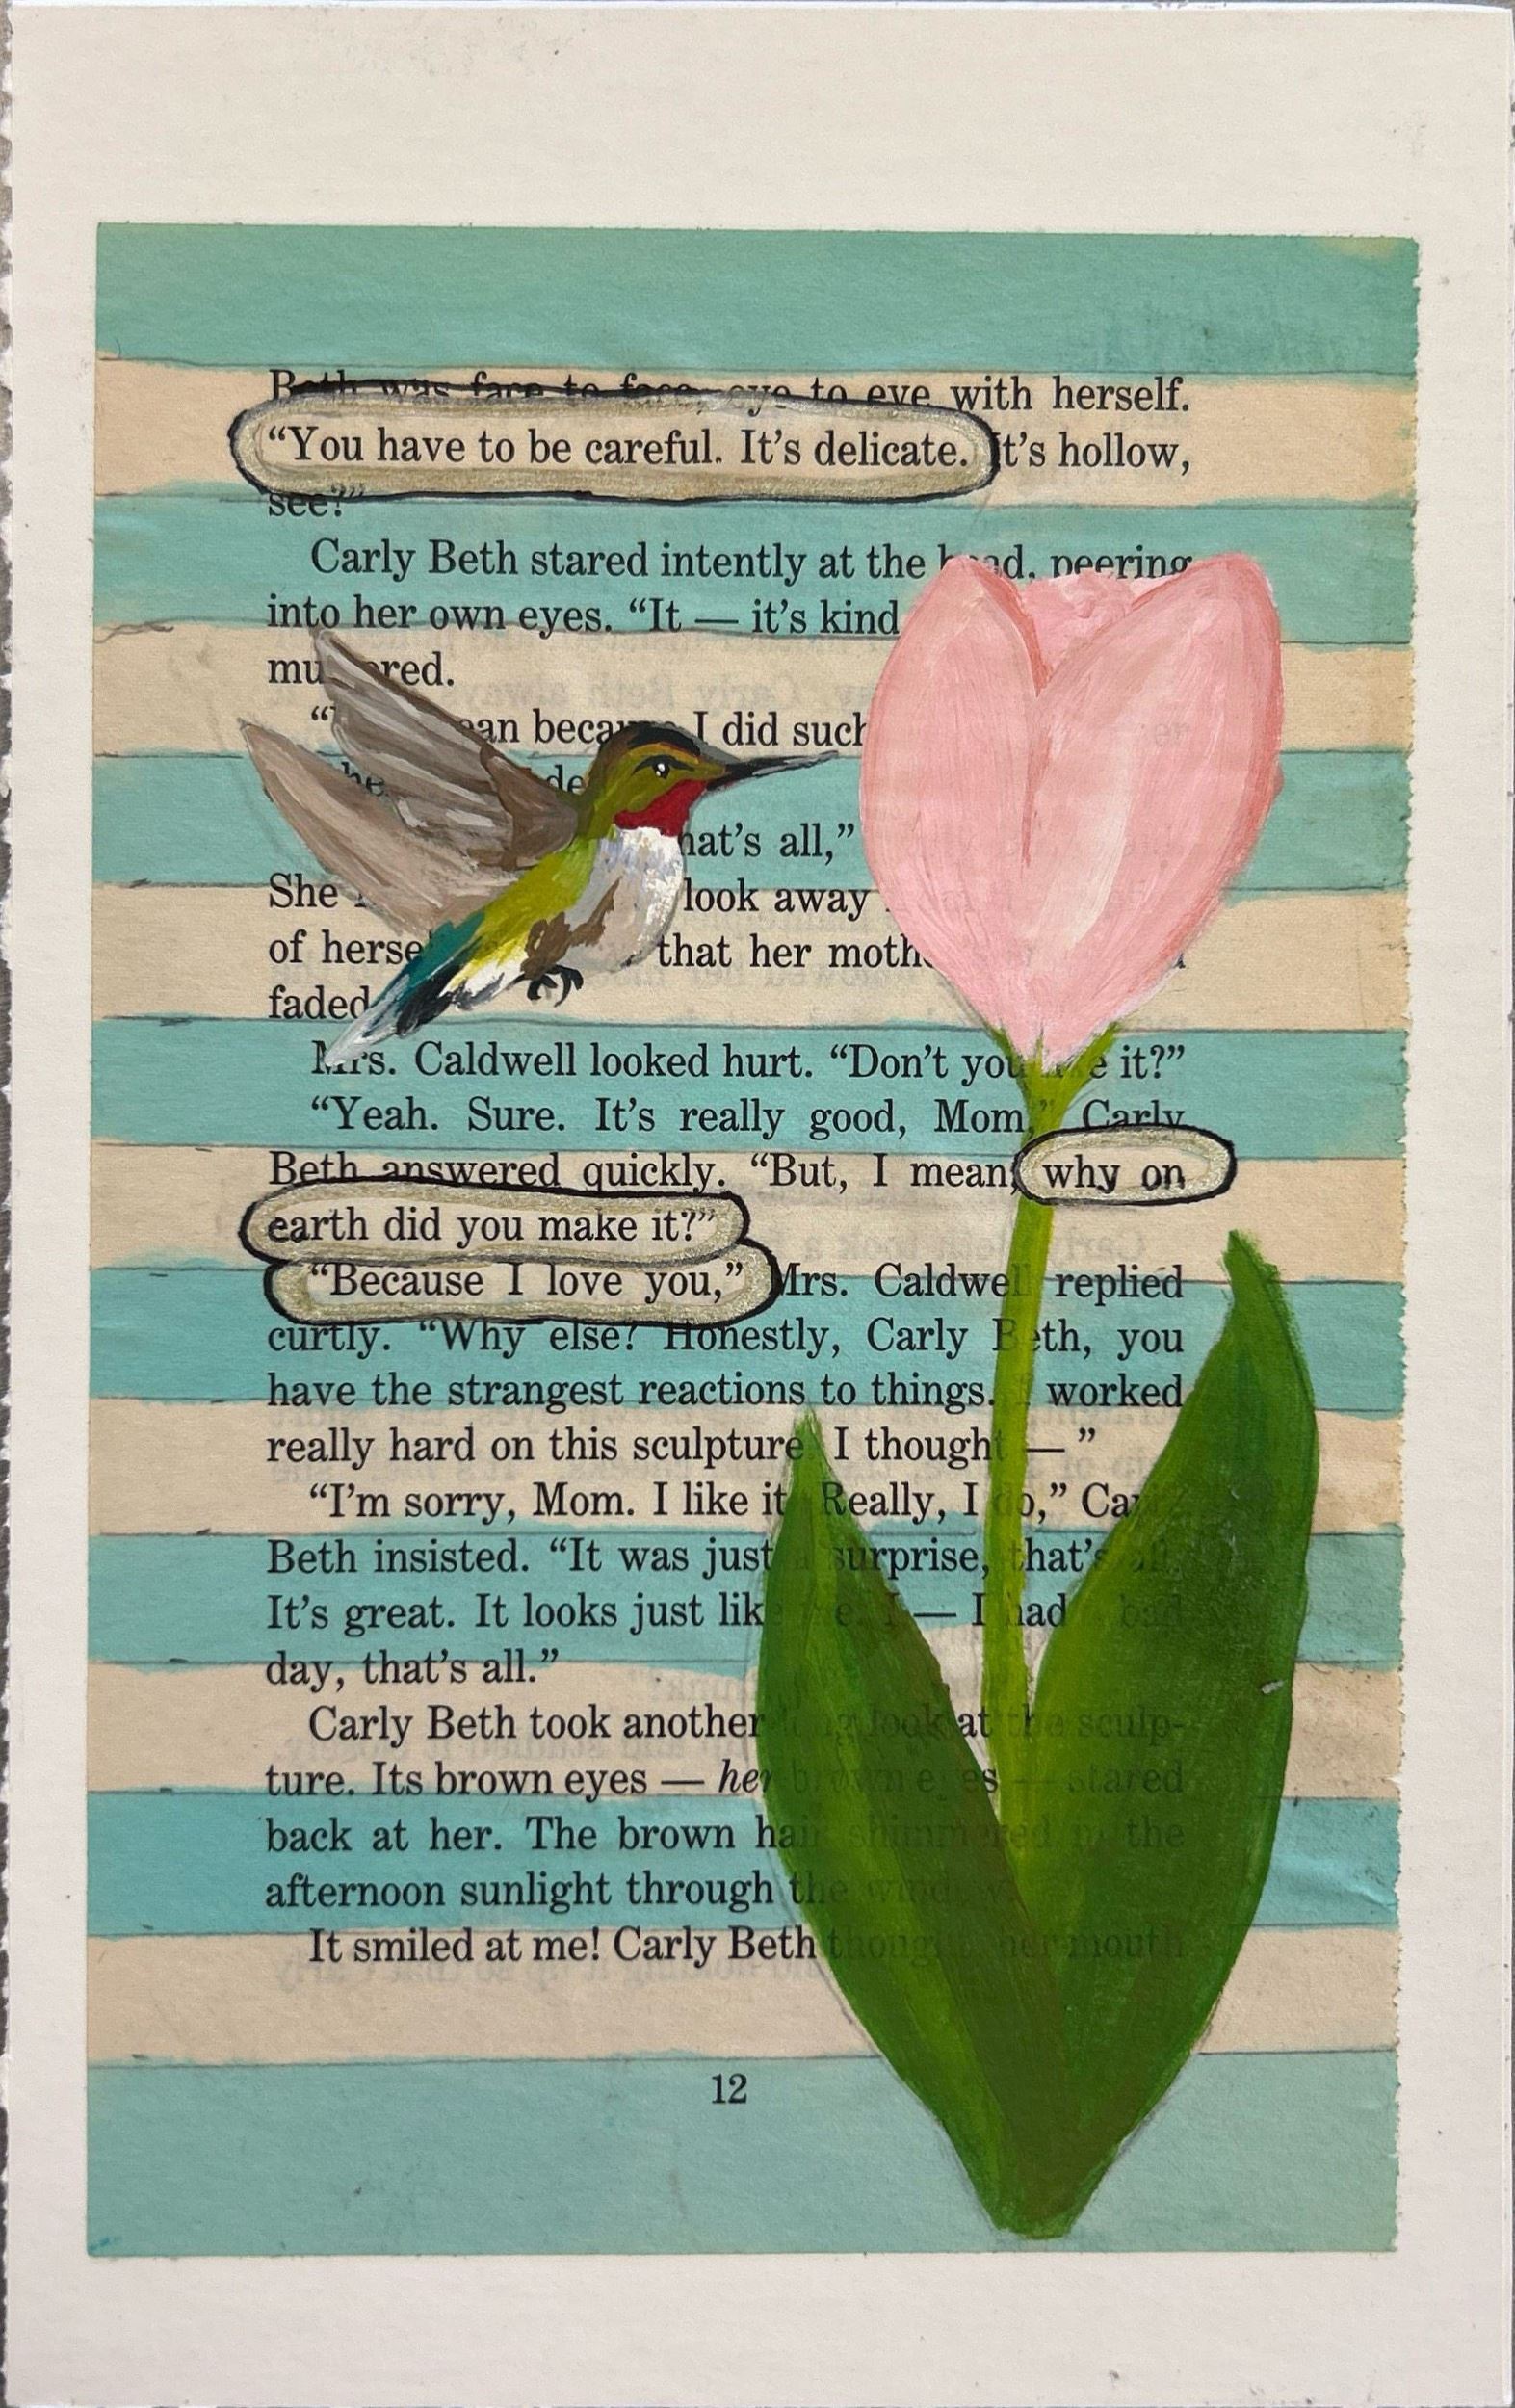 Beth was face to face, eye to eye with herself.
“You have to be careful. It’s delicate. It’s hollow,
see?”
Carly Beth stared intently at the head, peering
into her own eyes. “It — it’s kind
I did such
that’s all,”
She look away
of that her
faded
Mrs. Caldwell looked hurt. “Don’t you it?”
“Yeah. Sure. It’s really good, Mom,” Carly
Beth answered quickly. “But, I mean, why on
earth did you make it?”
“Because I love you,” Mrs. Caldwell replied
curtly. “Why else? Honestly, Carly Beth, you
have the strangest reactions to things. I worked
really hard on this sculpture. I thought — ”
“I’m sorry, Mom. I like it. Really, I do,”
Beth insisted. “It was just a surprise, that’s all.
It’s great. It looks just like — I had bad
day, that’s all.”
Carly Beth took another long look at the sculp-
ture. Its brown eyes — her brown eyes — stared
back at her. The brown hair shimmered in the
afternoon sunlight through the window.
It smiled at me! Carly Beth thought, her mouth
12